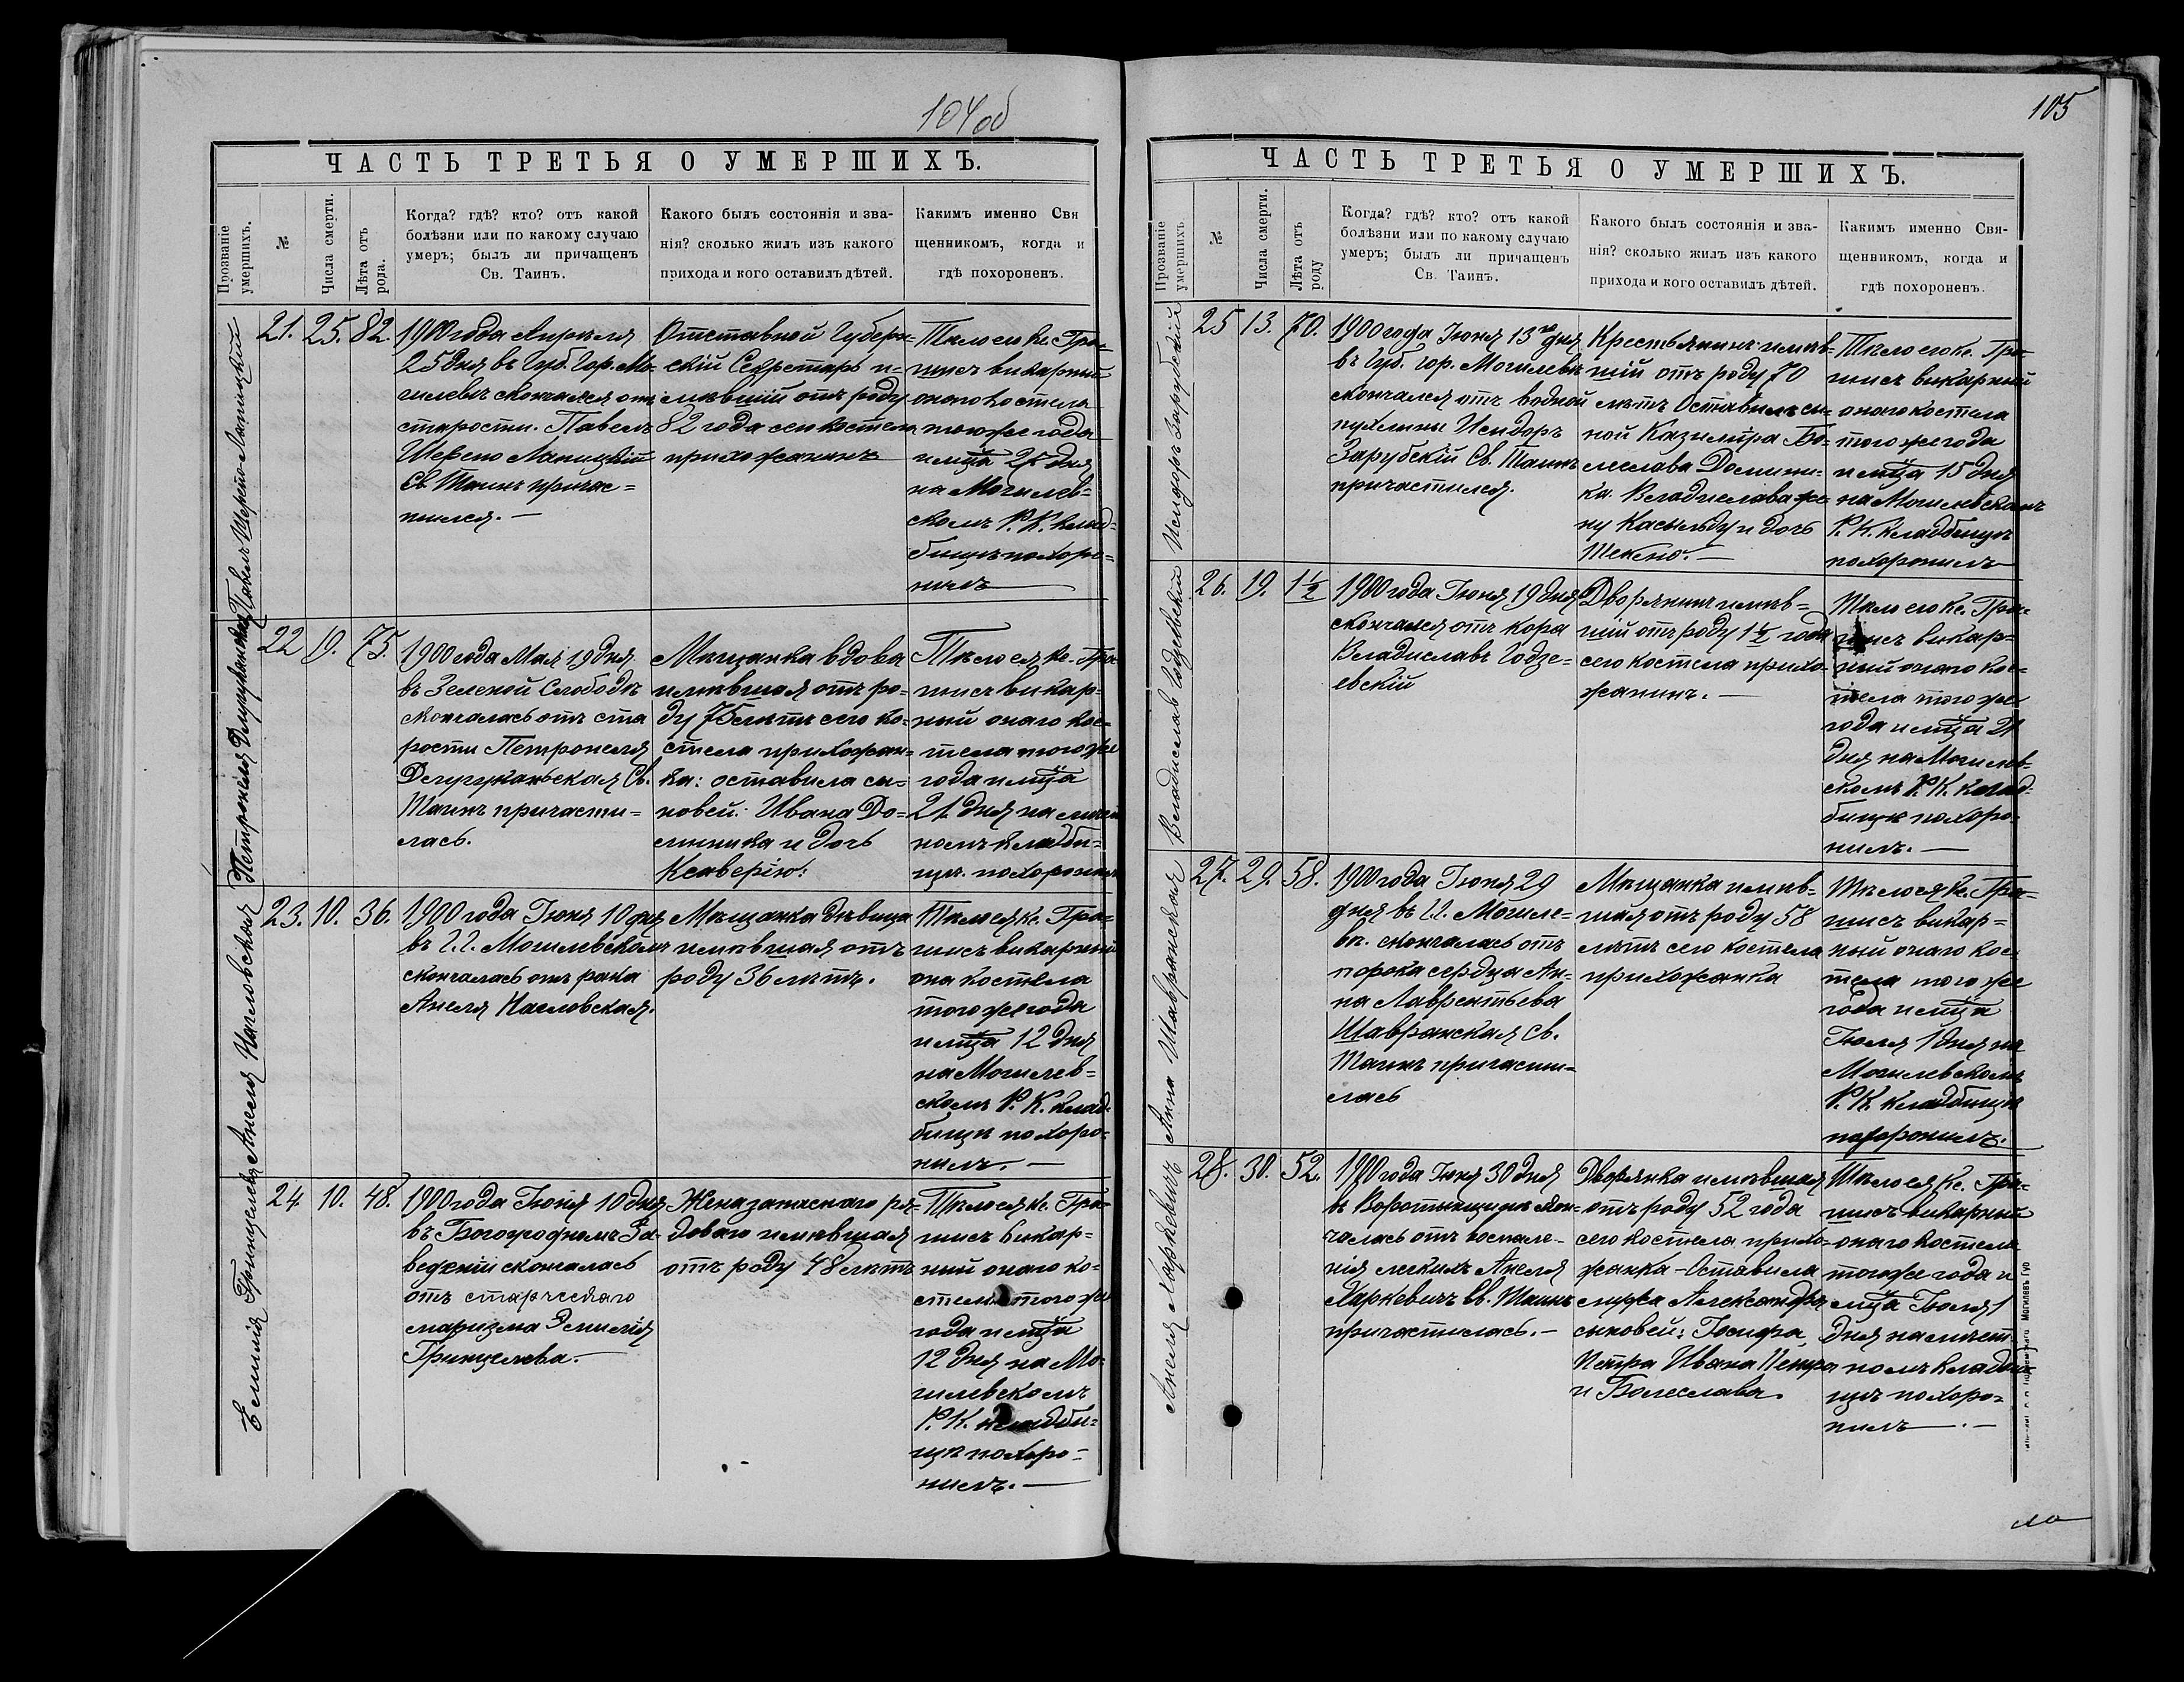 104 об
ЧАСТЬ ТРЕТЬЯ О УМЕРШИХЪ.
Прозваніе умершихъ.
№
Числа смерти.
Лѣта отъ рода.
Когда? гдѣ? кто? отъ какой
болѣзни или по какому случаю
умеръ; былъ ли причащенъ
Св. Таинъ.
Какого былъ состоянія и зва-
нія? сколько жилъ изъ какого
прихода и кого оставилъ дѣтей.
Какимъ именно Свя
щенникомъ, когда и
гдѣ похороненъ.
Павелъ Лапицкій
21. 25. 82.
1900 года Апрѣля
25 дня въ Губ. Гор. Мо-
гилевѣ скончался отъ
старости. Павелъ
Лапицкій
Св. Таинъ причас=
тился. —
Отставной Губерн-
скій Секретарь и-
мѣвшій отъ роду
82 года сего костела
прихожанинъ
Тѣло его Кс. Гра-
шисъ викарный
онаго костела
того же года
и мѣца 27 дня
на Могилев-
скомъ Р. К. клад=
бищѣ похоро=
нилъ
Петронеля
22 19. 75.
1900 года Мая 19 дня
въ Зеленой Слободѣ
скончалась отъ ста
рости Петронеля
Св.
Таинъ причасти-
лась.
Мѣщанка вдова
имѣвшая отъ ро-
ду 75 лѣтъ сего ко-
стела прихожан-
ка: оставила сы-
новей: Ивана До=
миника и дочь
Ксаверію:
Тѣло ея Кс. Гра
шисъ викар-
ный онаго кос-
тела того же
года и мѣца
21 дня на мѣст
номъ кладби-
щѣ похоронилъ
Анеля Нагловская
23. 10. 36.
1900 года Іюня 10 дня
въ Г. Г. Могилевскомъ
скончалась отъ рака
Анеля Нагловская.
Мѣщанка дѣвица
имѣвшая отъ
роду 36 лѣтъ.
Тѣло ея Кс. Гра-
шисъ викарный
она костела
того же года
и мѣца 12 дня
на Могилев=
скомъ Р. К. клад
бищѣ похоро-
нилъ. —
Емилія Гринцелева
24. 10. 48.
1900 года Іюня 10 дня
въ Богоугодномъ За-
веденіи скончалась
отъ старческаго
маразма Эмилія
Гринцелева. —
Жена запаснаго ря-
доваго имѣвшая
отъ роду 48 лѣтъ
Тѣло ея Кс. Гра-
шисъ викар-
ный онаго ко-
стела того же
года и мѣца
12 дня на Мо-
гилевскомъ
Р. К. кладби-
щѣ похоро-
нилъ. —
105
ЧАСТЬ ТРЕТЬЯ О УМЕРШИХЪ.
Прозваніе умершихъ
№
Числа смерти.
Лѣта отъ роду
Когда? гдѣ? кто? отъ какой
болѣзни или по какому случаю
умеръ; былъ ли причащенъ
Св. Таинъ.
Какого былъ состоянія и зва-
нія? сколько жилъ изъ какого
прихода и кого оставилъ дѣтей.
Какимъ именно Свя-
щенникомъ, когда и
гдѣ похороненъ.
Исидоръ Зарубскій
25 13. 70.
1900 года Іюня 13го дня
въ Губ. гор. Могилевѣ
скончался отъ водной
пухлины Исидоръ
Зарубскій Св. Таинъ
причастился.
Крестьянинъ имѣв-
шій отъ роду 70
лѣтъ Оставилъ сы-
ной Казиміра Бо-
леслава Домини-
ка. Владислава же
ну Касильду и дочь
Теклю. —
Тѣло его Кс. Гра
шисъ викарный
онаго костела
того же года
и мѣца 15 дня
на Могилевскомъ
Р. К. кладбищѣ
похоронилъ
Владиславъ Годзевскій
26. 19. 1 1/2
1900 года Іюня 19 дня
скончался отъ кора
Владиславъ Годзе=
евскій
Дворянинъ имѣв=
шій отъ роду 1 1/2 года
сего костела прихо-
жанинъ. —
Тѣло его Кс. Гра-
шисъ викар=
ный онаго кос-
тела того же
года и мѣца 21
дня на Могилев-
скомъ Р. К. клад-
бищѣ похоро-
нилъ. —
Анна Шавранская
27. 29. 58.
1900 года Іюня 29
дня въ Г. Г. Могиле-
вѣ. скончалась отъ
порока сердца Ан-
на Лаврентьева
Шавранская Св.
Таинъ причасти-
лась
Мѣщанка имѣв-
шая отъ роду 58
лѣтъ сего костела
прихожанка
Тѣло ея Кс. Гра-
шисъ викар=
ный онаго кос
тела того же
года и мѣца
Іюля 1 дня на
Могилевскомъ
Р. К. кладбищѣ
похоронилъ.
Анеля Харкевичъ
28. 30. 52.
1900 года Іюня 30 дня
въ Воротыщинѣ скон-
чалась отъ воспале-
нія легкихъ Анеля
Харкевичъ Св. Таинъ
причастилась. —
Дворянка имѣвшая
отъ роду 52 года
сего костела прихо-
жанка - Оставила
мужа Александра,
сыновей: Іосифа,
Петра Ивана Петра
и Болеслава.
Тѣло ея Кс. Гра-
шисъ викарный
онаго костела
того же года и
мѣца Іюля 1
дня на мѣст-
номъ кладби
щѣ похоро-
нилъ . —